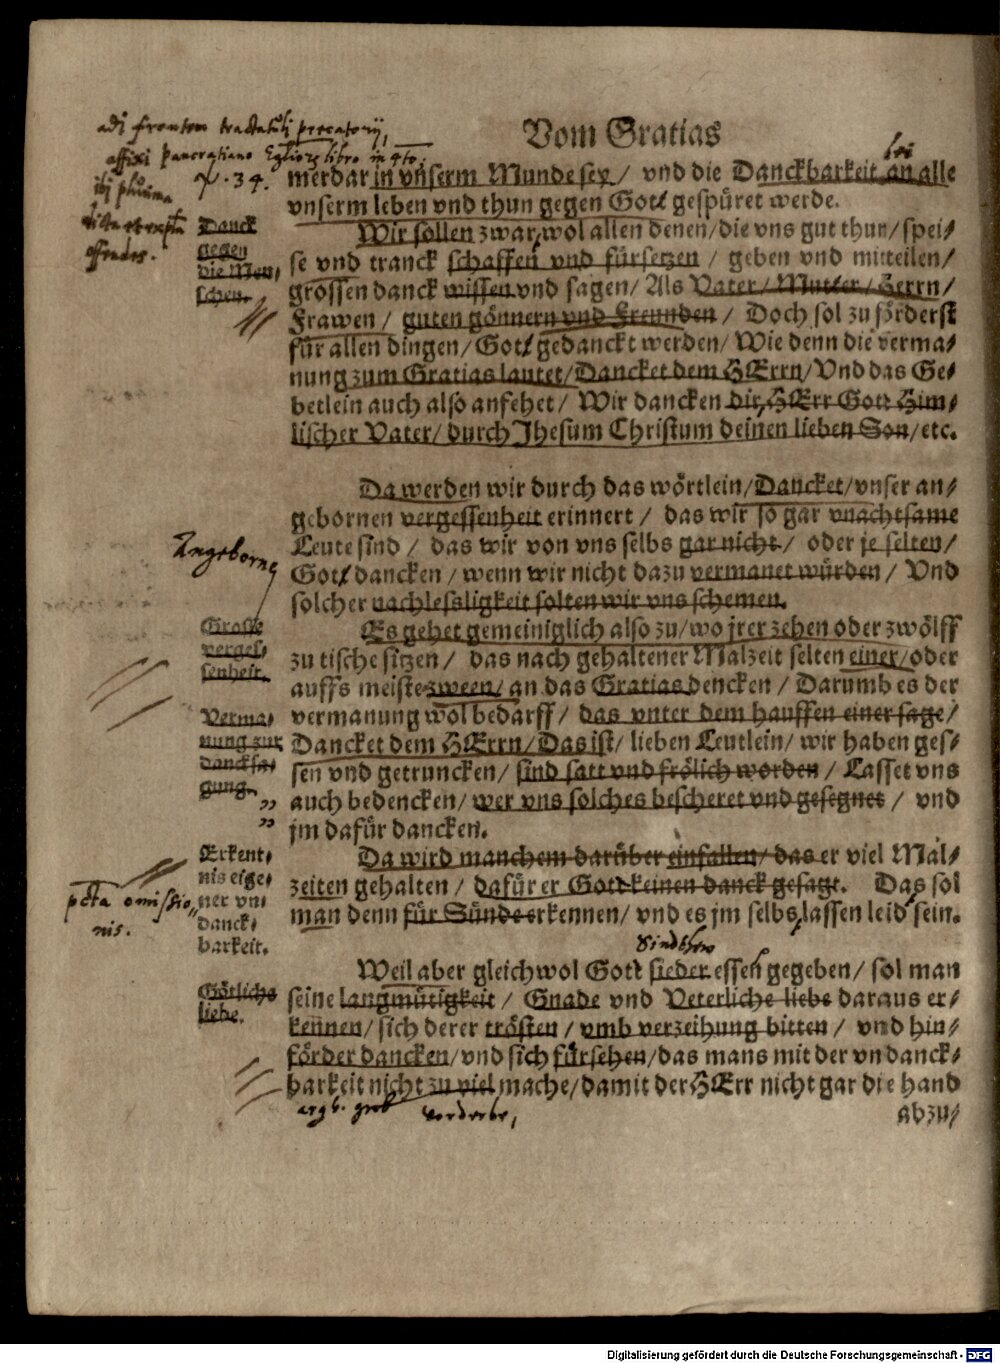 Vom Gratias
merdar in vnserm Munde sey / vnd die Danckbarkeit an alle
vnserm leben vnd thun gegen Gott gespüret werde.
Danck
gegen
die Men⸗
schen.
Wir sollen zwar wol allen denen/die vns gut thun/spei⸗
se vnd tranck schaffen vnd fürsetzen / geben vnd mitteilen/
grossen danck wissen vnd sagen/ Als Vater/ Mutter/ Herrn/
Frawen / guten gönnern vnd Freunden / Doch sol zu förderst
für allen dingen/Gott gedanckt werden/Wie denn die verma⸗
nung zum Gratias lautet/Dancket dem HErrn/Vnd das Ge⸗
betlein auch also anfehet / Wir dancken dir, HErr Gott Him⸗
lischer Vater/ durch Jhesum Christum deinen lieben Son/etc.
Da werden wir durch das wörtlein/Dancket/vnser an⸗
gebornen vergessenheit erinnert / das wir so gar vnachtsame
Leute sind / das wir von vns selbs gar nicht / oder je selten/
Gott dancken / wenn wir nicht dazu vermanet würden / Vnd
solcher nachlessligkeit solten wir vns schemen.
Angeborne
Grosse
verges⸗
senheit.
Es gehet gemeiniglich also zu/wo jrer zehen oder zwölff
zu tische sitzen / das nach gehaltener Malzeit selten einer/oder
auffs meiste zween/ an das Gratias dencken / Darumb es der
vermanung wol bedarff / das vnter dem hauffen einer sage/
Dancket dem HErrn/Das ist/ lieben Leutlein/ wir haben ges⸗
sen vnd getruncken/ sind satt vnd frölich worden / Lasset vns
auch bedencken/ wer vns solches bescheret vnd gesegnet / vnd
jm dafür dancken.
Verma⸗
nung zur
dancksa⸗
gung.
Da wird manchem darüber einfallen/ das er viel Mal⸗
zeiten gehalten / dafür er Gott keinen danck gesagt. Das sol
man denn für Sünde erkennen/ vnd es jm selbs lassen leid sein.
Erkent⸗
nis eige⸗
ner vn⸗
danck⸗
barkeit.
omissio⸗
nis.
Weil aber gleichwol Gott sieder essen gegeben/ sol man
seine langmütigkeit / Gnade vnd Veterliche liebe daraus er⸗
kennen/ sich derer trösten / vmb verzeihung bitten / vnd hin⸗
förder dancken/vnd sich fürsehen/das mans mit der vndanck⸗
barkeit nicht zu viel mache/damit der HErr nicht gar die hand
Götliche
liebe.
abzu⸗
Digitalisierung gefördert durch die Deutsche Forschungsgemeinschaft - DFG